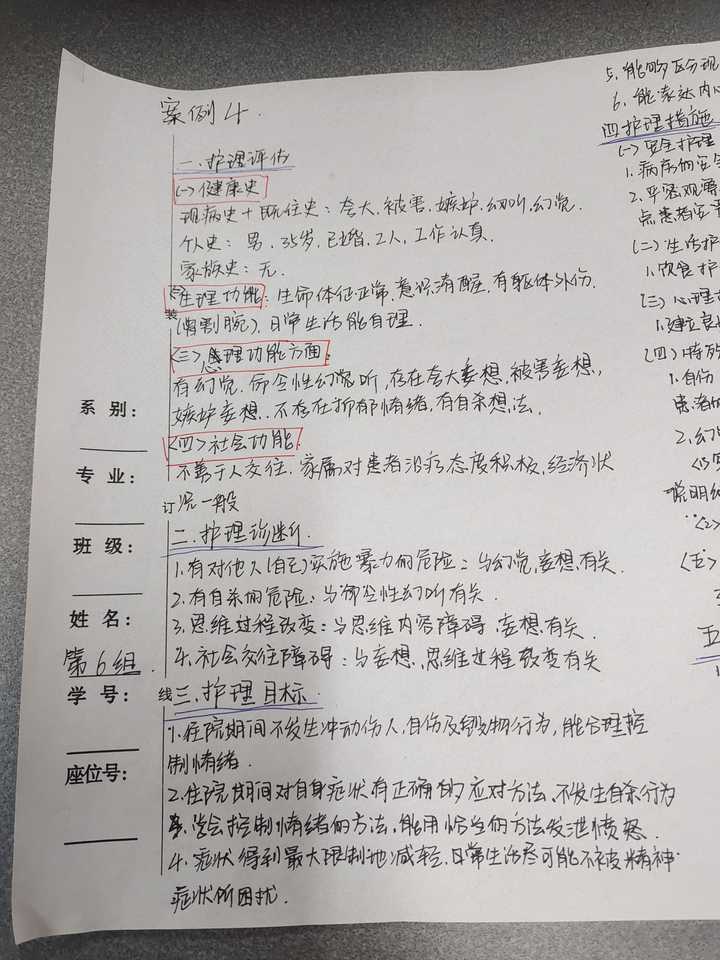 案例4.
一.护理评估
(一)健康史
现病史+既往史：夸大.被害.嫉妒.幻听.幻觉.
个人史：男.35岁.已婚.2人.工作认真.
家族史：无.
生理功能：生命体征正常.意识清醒.有躯体外伤.
装
(曾割腕).日常生活能自理.
<三>心理功能方面：
有幻觉.命令性幻觉听,存在夸大妄想,被害妄想,
系 别：
嫉妒妄想.不存在抑郁情绪,有自杀想法.
<四>社会功能：
专 业：
不善于人交往.家属对患者治疗态度积极,经济状
订
况一般
班 级：
二.护理诊断.
1.有对他人(自己)实施暴力的危险：与幻觉,妄想有关.
2.有自杀的危险：与命令性幻听有关.
姓 名：
3.思维过程改变：与思维内容障碍,妄想有关.
第6组.
4.社会交往障碍：与妄想,思维过程改变有关
学 号：
线
三.护理目标.
1.住院期间不发生冲动伤人,自伤及毁物行为,能合理控
制情绪.
座位号：
2.住院期间对自身症状有正确的应对方法,不发生自杀行为
3.学会控制情绪的方法,能用恰当的方法发泄愤怒.
4.症状得到最大限制地减轻.日常生活尽可能不被精神
症状所困扰.
5.能够区分现
6.能表达内心
四护理措施
(一)安全护理
1.病房的安全
2.严密观察
点患者安
(二)生活护
1.饮食护
(三)心理
1.建立良
(四)特殊
1.自伤
患者的
2.幻
<2>
<五>
五